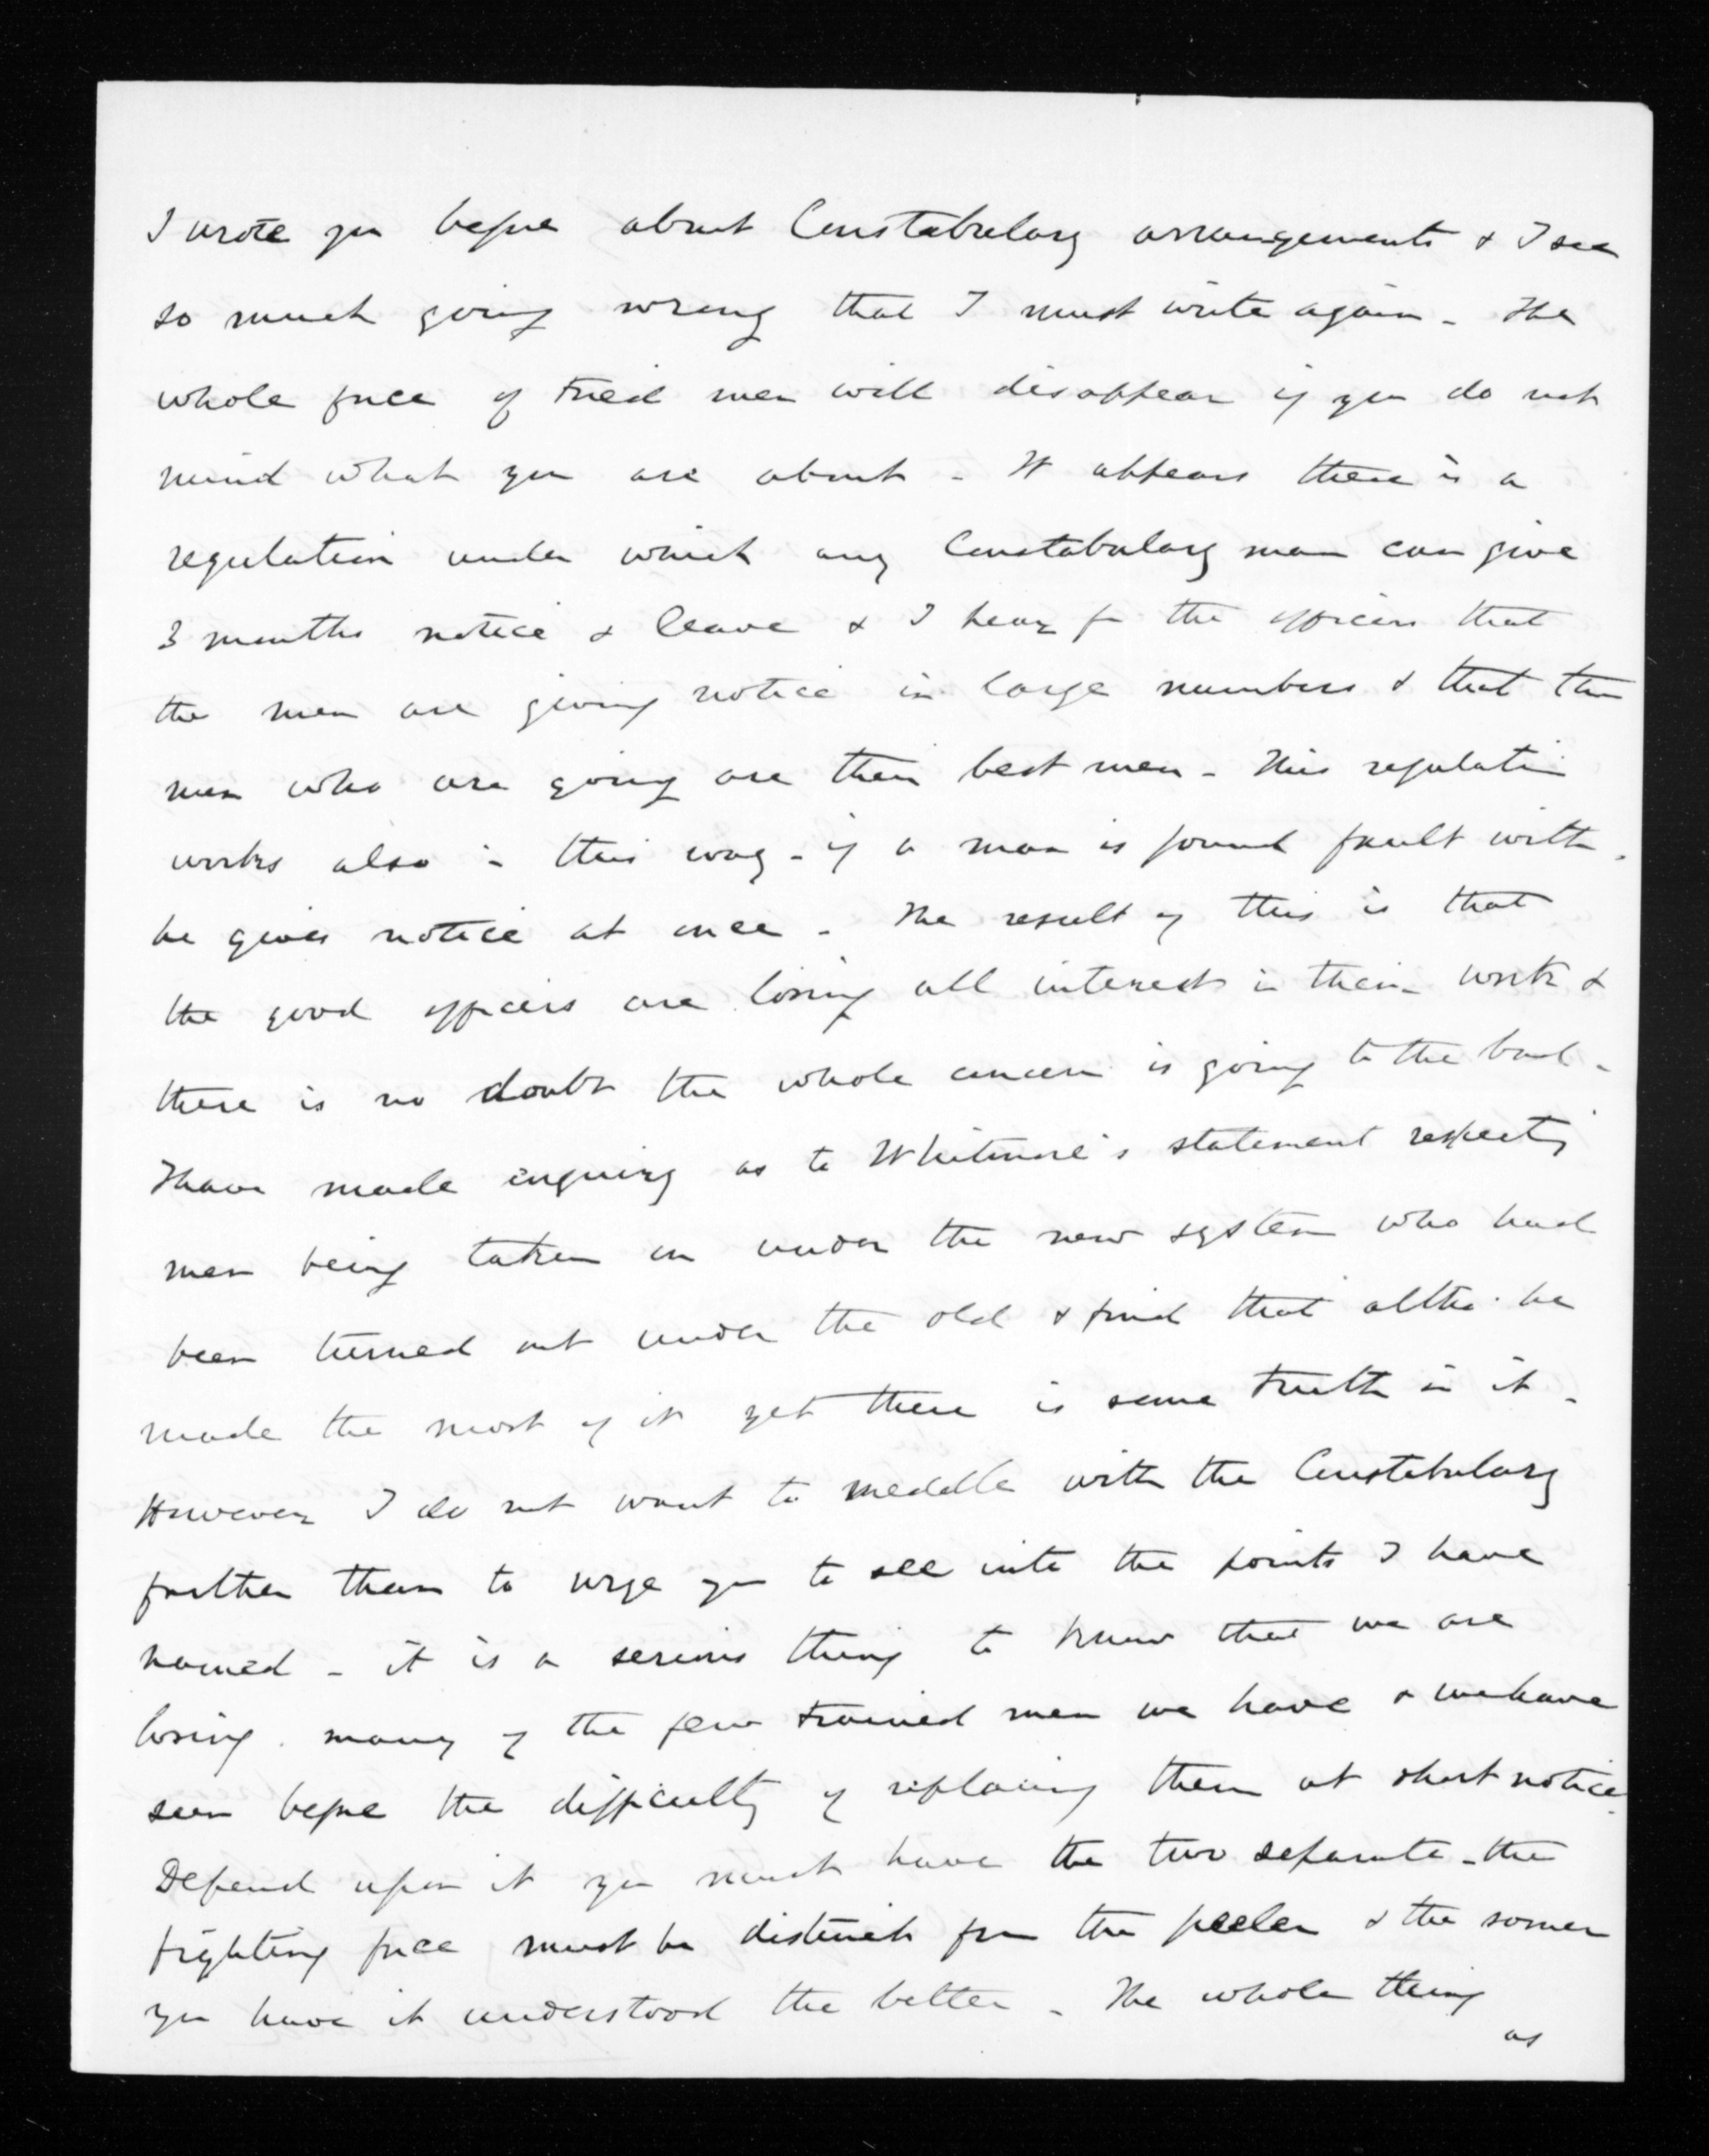 I wrote you before about Constabulary arrangements & I see
so much going wrong that I must write again - The
whole force of tried men will disappear if you do not
mind what you are about - It appears there is a
regulation under which any Constabulary man can give
3 months notice & leave & I hear fm the officers that
the men are giving notice in large numbers & that the
men who are going are their best men - This regulation
works also in this way - if a man is found fault with
he gives notice at once - The result of this is that
the good officers are losing all interest in their work &
there is no doubt the whole concern is going to the bad -
I have made enquiry as to Whitmore's statement respecting
men being taken on under the new system who had
been turned out under the old & find that altho' he
made the most of it yet there is some truth in it -
However I do not want to meddle with the Constabulary
further than to urge you to see into the points I have
named - it is a serious thing to know that we are
losing many of the few trained men we have & we have
seen before the difficulty of replacing them at short notice.
Depend upon it you must have the two separate - the
fighting force must be distinct from the peeler & the sooner
you have it understood the better - The whole thing
as